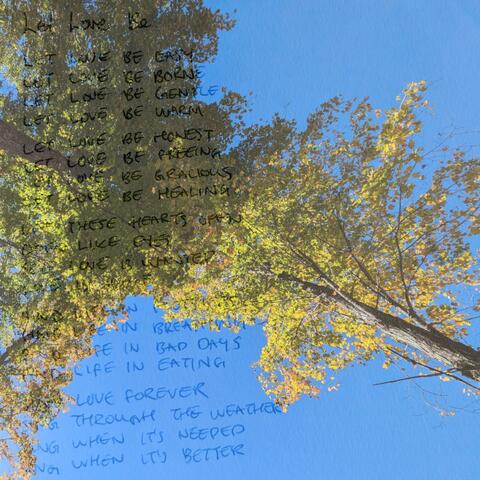 Let Love Be
LET LOVE BE EASY
LET LOVE BE BORNE
LET LOVE BE GENTLE
LET LOVE BE WARM
LET LOVE BE HONEST
LET LOVE BE FREEING
LET LOVE BE GRACIOUS
LET LOVE BE HEALING
THESE HEARTS OPEN
LIKE EYES
LOVE IS WANTED
IN
IN BREATHING
LIFE IN BAD DAYS
LIFE IN EATING
LOVE FOREVER
THROUGH THE WEATHER
WHEN IT'S NEEDED
WHEN IT'S BETTER